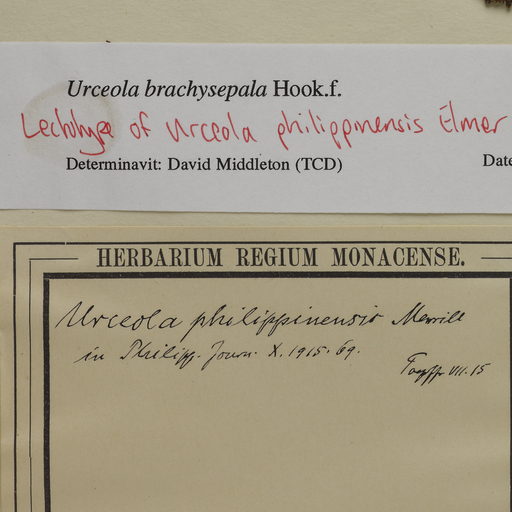 Urceola brachysepala Hook.f.
Lectotype of Urceola philippinensis Elmer
Determinavit: David Middleton (TCD)
Date
HERBARIUM REGIUM MONACENSE.
Urceola philippinensis Merrill
in Philipp. Journ. X. 1915. 69.
VII. 15